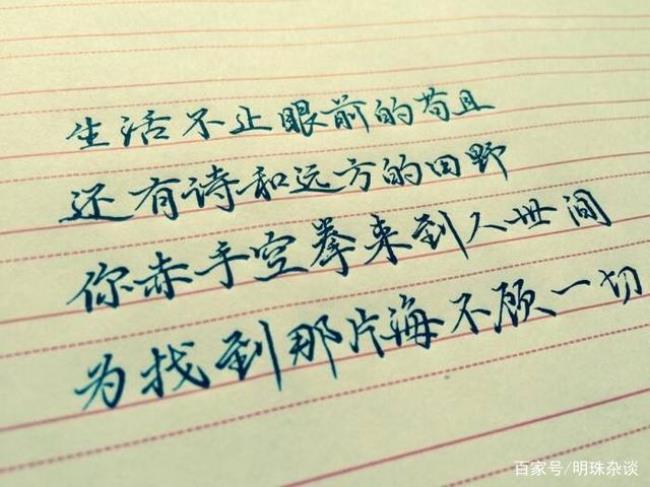 生活不止眼前的苟且
还有诗和远方的田野
你赤手空拳来到人世间
为找到那片海不顾一切
百家号/明珠杂谈